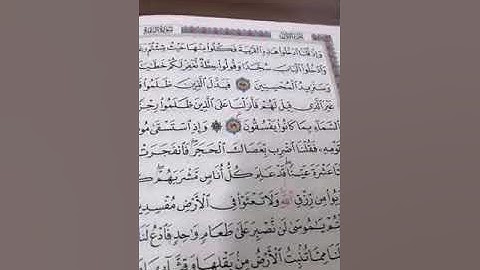 الجزء الأول سورة البقرة
وَإِذْ قُلْنَا ٱدْخُلُوا۟ هَٰذِهِ ٱلْقَرْيَةَ فَكُلُوا۟ مِنْهَا حَيْثُ شِئْتُمْ
وَٱدْخُلُوا۟ ٱلْبَابَ سُجَّدًا وَقُولُوا۟ حِطَّةٌ نَّغْفِرْ لَكُمْ خَطَٰيَ
وَسَنَزِيدُ ٱلْمُحْسِنِينَ ۝ فَبَدَّلَ ٱلَّذِينَ ظَلَمُوا۟
غَيْرَ ٱلَّذِى قِيلَ لَهُمْ فَأَنزَلْنَا عَلَى ٱلَّذِينَ ظَلَمُوا۟ رِجْزً
ٱلسَّمَآءِ بِمَا كَانُوا۟ يَفْسُقُونَ ۝ ۞ وَإِذِ ٱسْتَسْقَىٰ مُو
قَوْمِهِۦ فَقُلْنَا ٱضْرِب بِّعَصَاكَ ٱلْحَجَرَ ۖ فَٱنفَجَرَتْ
تَا عَشْرَةَ عَيْنًا ۖ قَدْ عَلِمَ كُلُّ أُنَاسٍ مَّشْرَبَهُمْ ۖ كُ
رَبُوا۟ مِن رِّزْقِ ٱللَّهِ وَلَا تَعْثَوْا۟ فِى ٱلْأَرْضِ مُفْسِدِي
تُمْ يَٰمُوسَىٰ لَن نَّصْبِرَ عَلَىٰ طَعَامٍ وَٰحِدٍ فَٱدْعُ لَنَا
نَا مِمَّا تُنۢبِتُ ٱلْأَرْضُ مِنۢ بَقْلِهَا وَقِثَّآئِهَا